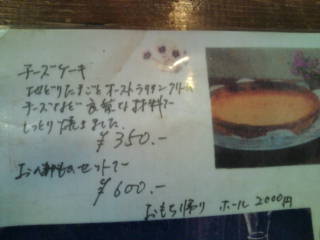 チーズケーキ
オーストラリアンクリーム
チーズなど良質な材料で
しっとり焼きました。
¥350.-
お飲みものセットで
¥600.-
おもち帰り ホール 2000円